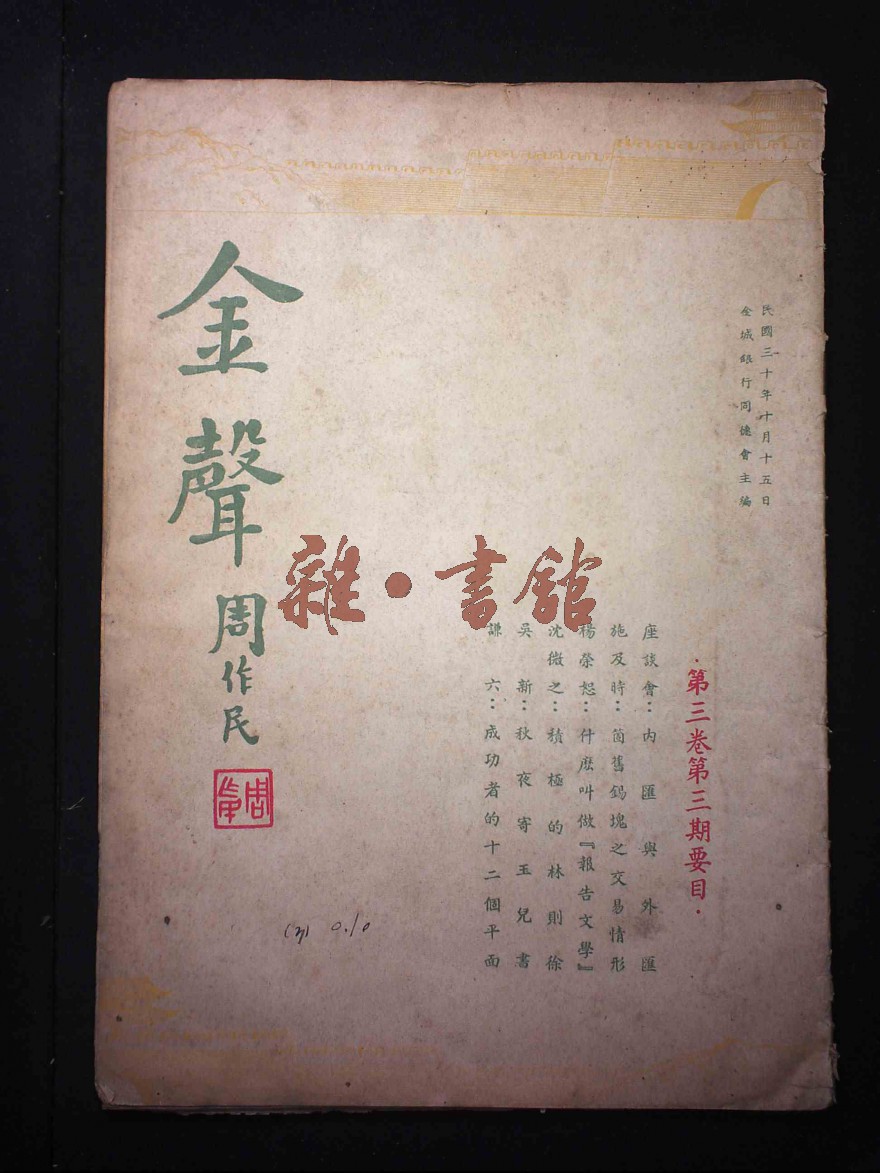 民國三十年十月十五日
金城銀行同德會主編
·第三卷第三期要目·
座談會：內匯與外匯
施及時：箇舊錫塊之交易情形
楊榮恕：什麼叫做『報告文學』
沈微之：積極的林則徐
吳新：秋夜寄玉兒書
謙六：成功者的十二個平面
金聲
周作民
雜·書館
0.10